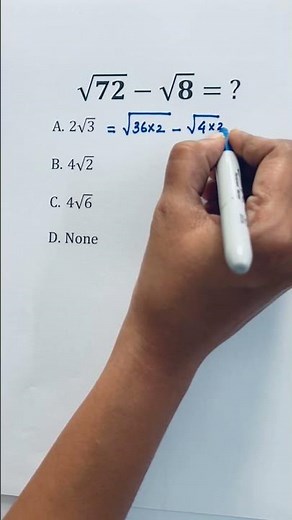 √72 − √8 = ?
A. 2√3 = √36×2 − √4×2
B. 4√2
C. 4√6
D. None